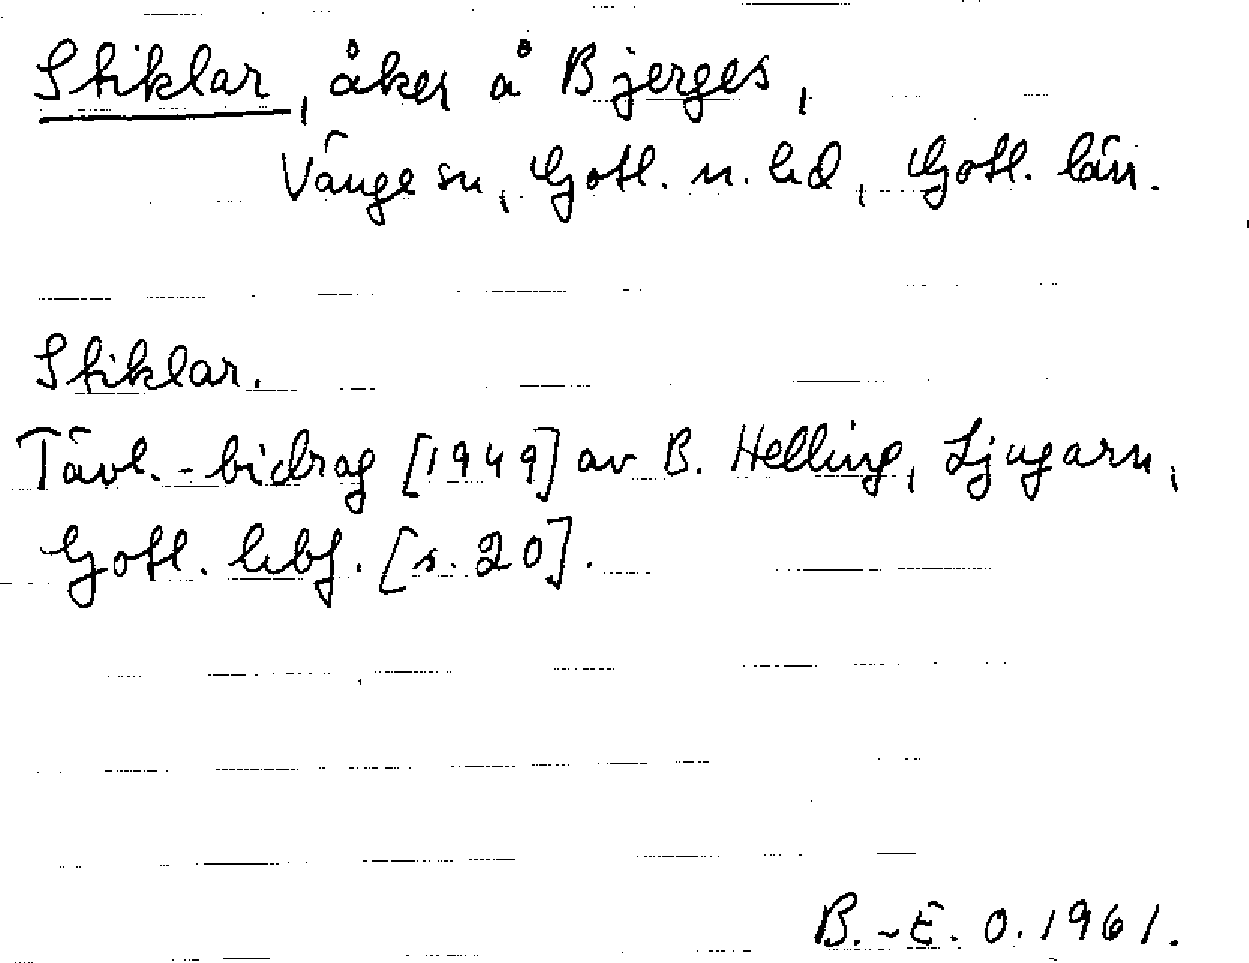 Stiklar, åker å Bjerges,
Vänge sn, Gotl. n. hd, Gotl. län.
Stiklar.
Tävl.-bidrag [1949] av B. Helling, Ljugarn,
Gotl. hbf. [s. 20].
B.-E. O. 1961.